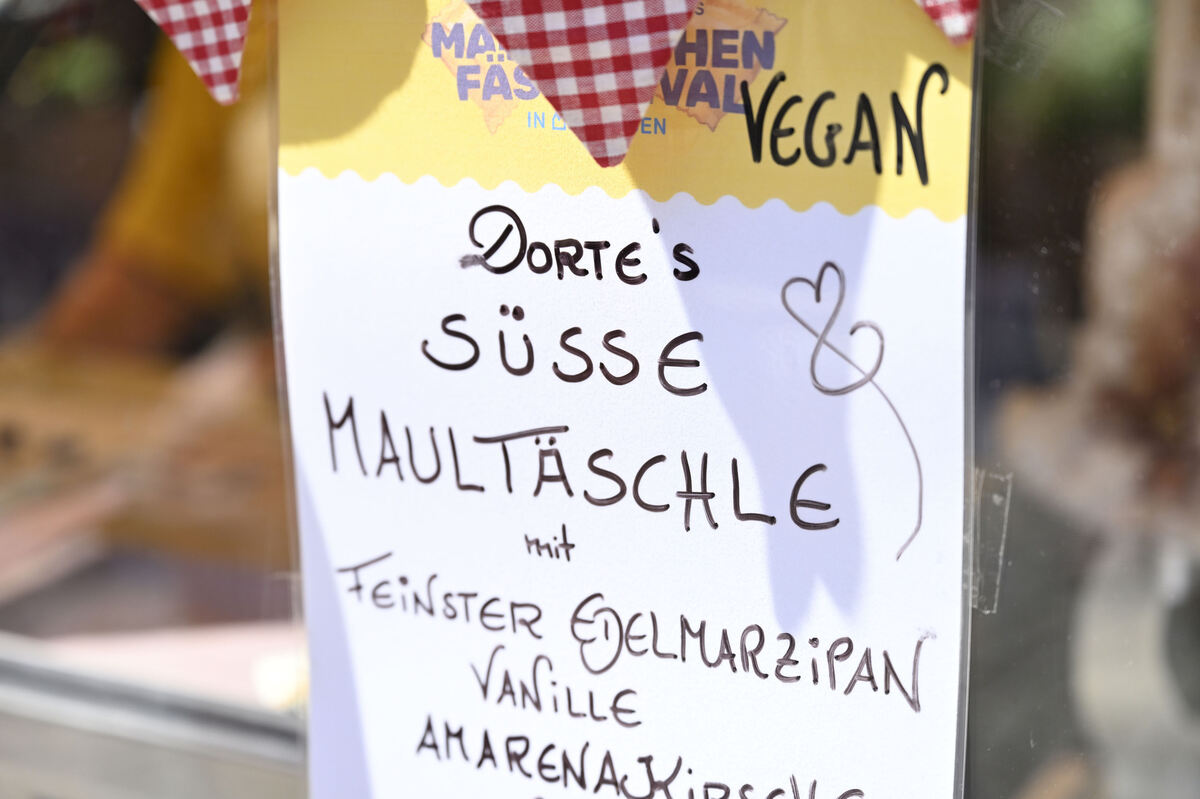 VEGAN
DORTE's
SÜSSE
MAULTÄSCHLE
mit
FEINSTER EDELMARZIPAN
VANILLE
AMARENAKIRSCHE